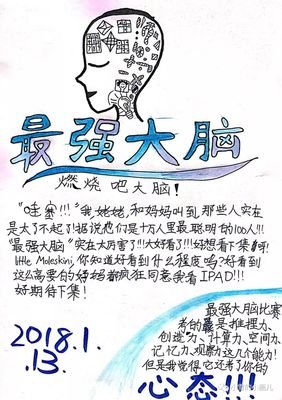 最强大脑
燃烧吧大脑!
"哇塞!!!"我,姥姥,和妈妈叫到,那些人实在
是太了不起了!据说他们是十万里最聪明的100人!!!
"最强大脑"实在太厉害了!!!大好看了!!!好想看下集啊!
little Moleskin,你知道好看到什么程度吗?好看到
这么高要的妈妈都疯狂同意我看IPAD!!!
好期待下集!
最强大脑比赛
考的是推理力、
创造力、计算力、空间力、
记忆力、观察力这几个能力!
但是我觉得它还考你的
心态!!!
2018.1.
13.